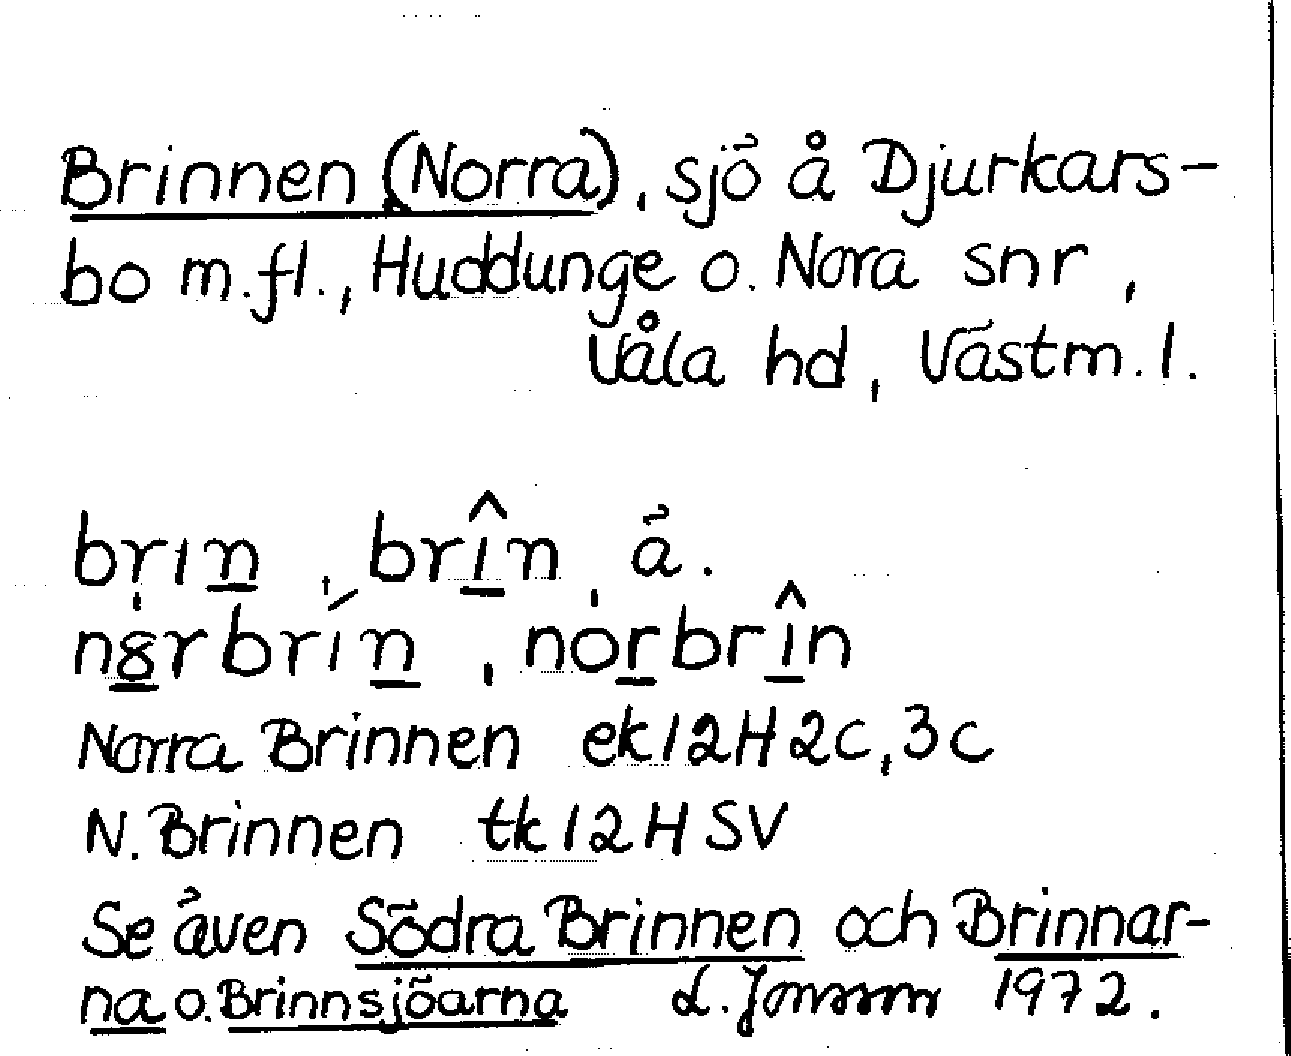 Brinnen (Norra), sjö å Djurkars-
bo m.fl., Huddunge o. Nora snr,
Våla hd, Västm.l.
brın, brîn, ä.
nȣrbrín, norbrîn
Norra Brinnen ek12H2c,3c
N. Brinnen tk12HSV
Se även Södra Brinnen och Brinnar-
na o. Brinnsjöarna L. Jonsson 1972.